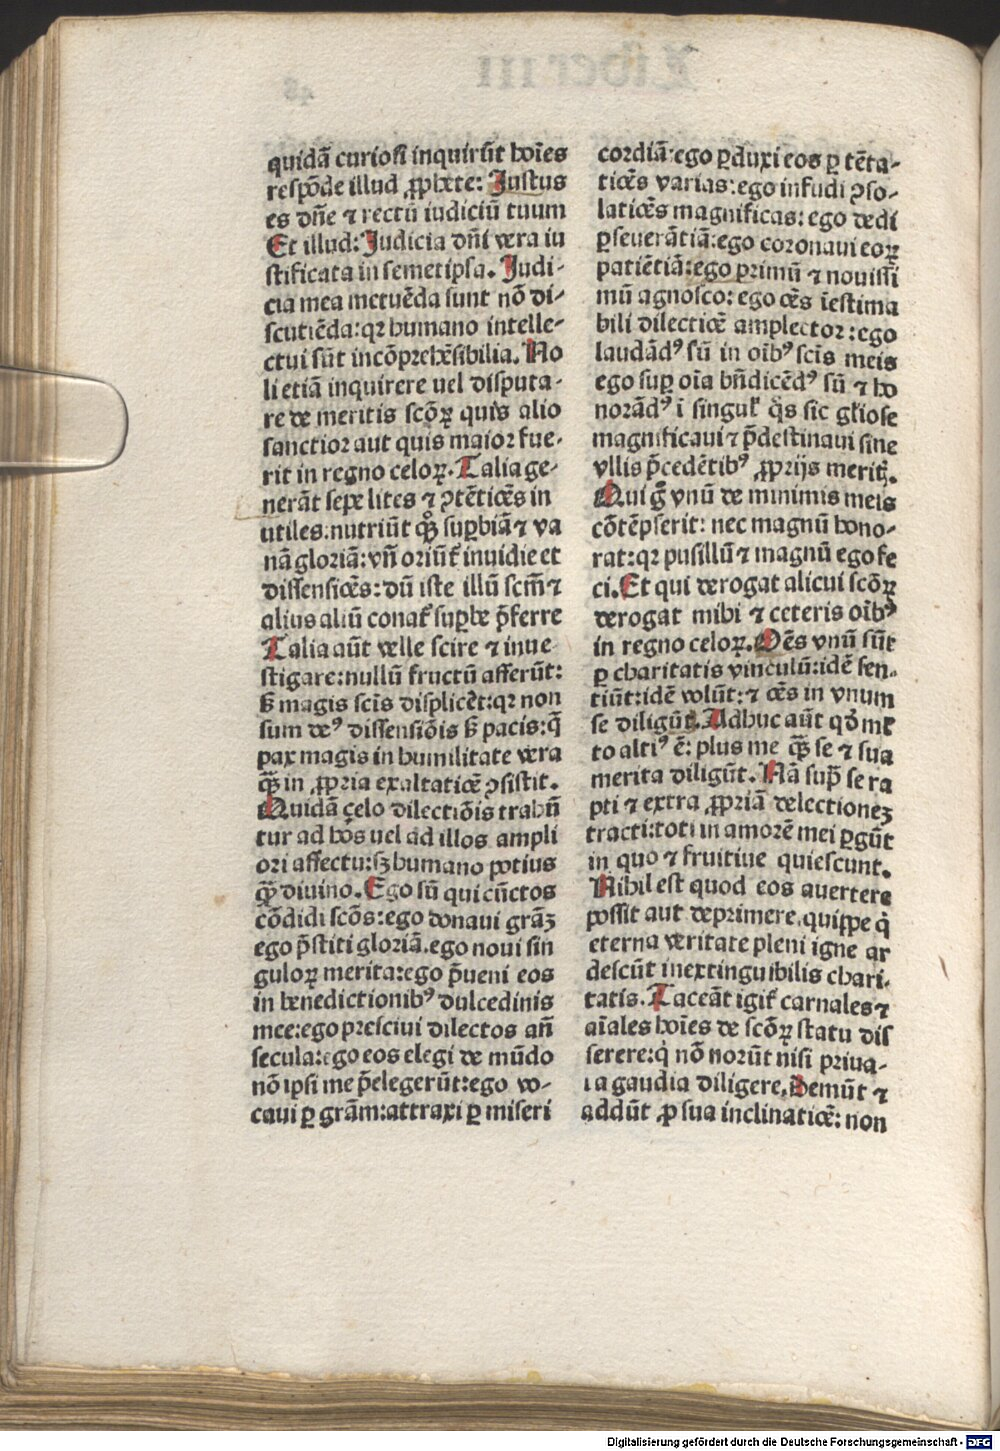 quidã curiosi inquirũt hoĩes
respõde illud ꝓphete: Justus
es dñe ⁊ rectũ iudiciũ tuum
Et illud: Judicia dñi vera iu
stificata in semetipsa. Judi-
cia mea metuẽda sunt nõ di-
scutiẽda: qꝛ humano intelle-
ctui sũt incõprehẽsibilia. No
li etiã inquirere uel disputa-
re de meritis scõꝝ quis alio
sanctior aut quis maior fue-
rit in regno celoꝝ. Talia ge-
nerãt sepe lites ⁊ ꝯtẽtiões in
utiles: nutriũt qq̃ supbiã ⁊ va
nã gloriã: vñ oriũt̃ inuidie et
dissensiões: dũ iste illũ scm̃ ⁊
alius aliũ conat̃ supbe p̃ferre
Talia aũt velle scire ⁊ inue
stigare: nullũ fructũ afferũt:
ß magis scis̃ displicẽt: qꝛ non
sum deꝰ dissensiõis ß pacis: q̃
pax magis in humilitate vera
q̃ꝫ in ꝓpria exaltatiõe ꝯsistit.
Quidã çelo dilectiõis trahũ
tur ad hos uel ad illos ampli
ori affectu: sꝫ humano potius
q̃ꝫ diuino. Ego sũ qui cũctos
cõdidi scõs: ego donaui grãꝫ
ego p̃stiti gloriã. ego noui sin
guloꝝ merita: ego p̃ueni eos
in benedictionibꝰ dulcedinis
mee: ego presciui dilectos añ
secula: ego eos elegi de mũdo
nõ ipsi me p̃elegerũt: ego vo-
caui ꝑ grãm: attraxi ꝑ miseri
cordiã: ego ꝑduxi eos ꝑ tẽta-
tiões varias: ego infudi ꝯso-
latiões magnificas: ego dedi
ꝑseuerãtiã: ego coronaui eoꝝ
patiẽtiã: ego primũ ⁊ nouissi
mũ agnosco: ego oẽs ĩestima
bili dilectiõe amplector: ego
laudãdꝰ sũ in oĩbꝰ scĩs meis
ego suꝑ oĩa bñdicẽdꝰ sũ ⁊ ho
norãdꝰ ĩ singul̃ q̃s sic gl̃iose
magnificaui ⁊ p̃destinaui sine
vllis p̃cedẽtibꝰ ꝓprijs merit̃.
Qui g̃ vnũ de minimis meis
cõtẽpserit: nec magnũ hono-
rat: qꝛ pusillũ ⁊ magnũ ego fe
ci. Et qui derogat alicui scõꝝ
derogat mihi ⁊ ceteris oĩbꝰ
in regno celoꝝ. Oẽs vnũ sũt
ꝑ charitatis vinculũ: idẽ sen-
tiũt: idẽ volũt: ⁊ oẽs in vnum
se diligũt. Adhuc aũt qð ml̃
to altiꝰ ẽ: plus me q̃ꝫ se ⁊ sua
merita diligũt. Nã sup̃ se ra
pti ⁊ extra ꝓpriã delectioneꝫ
tracti: toti in amorẽ mei ꝑgũt
in quo ⁊ fruitiue quiescunt.
Nihil est quod eos auertere
possit aut deprimere. quippe q̃
eterna veritate pleni igne ar
descũt inextinguibilis chari-
tatis. Taceãt igit̃ carnales ⁊
aĩales hoĩes de scõꝝ statu dis
serere: q̃ nõ norũt nisi priua-
ta gaudia diligere. Demũt ⁊
addũt ꝓ sua inclinatiõe: non
Digitalisierung gefördert durch die Deutsche Forschungsgemeinschaft - DFG